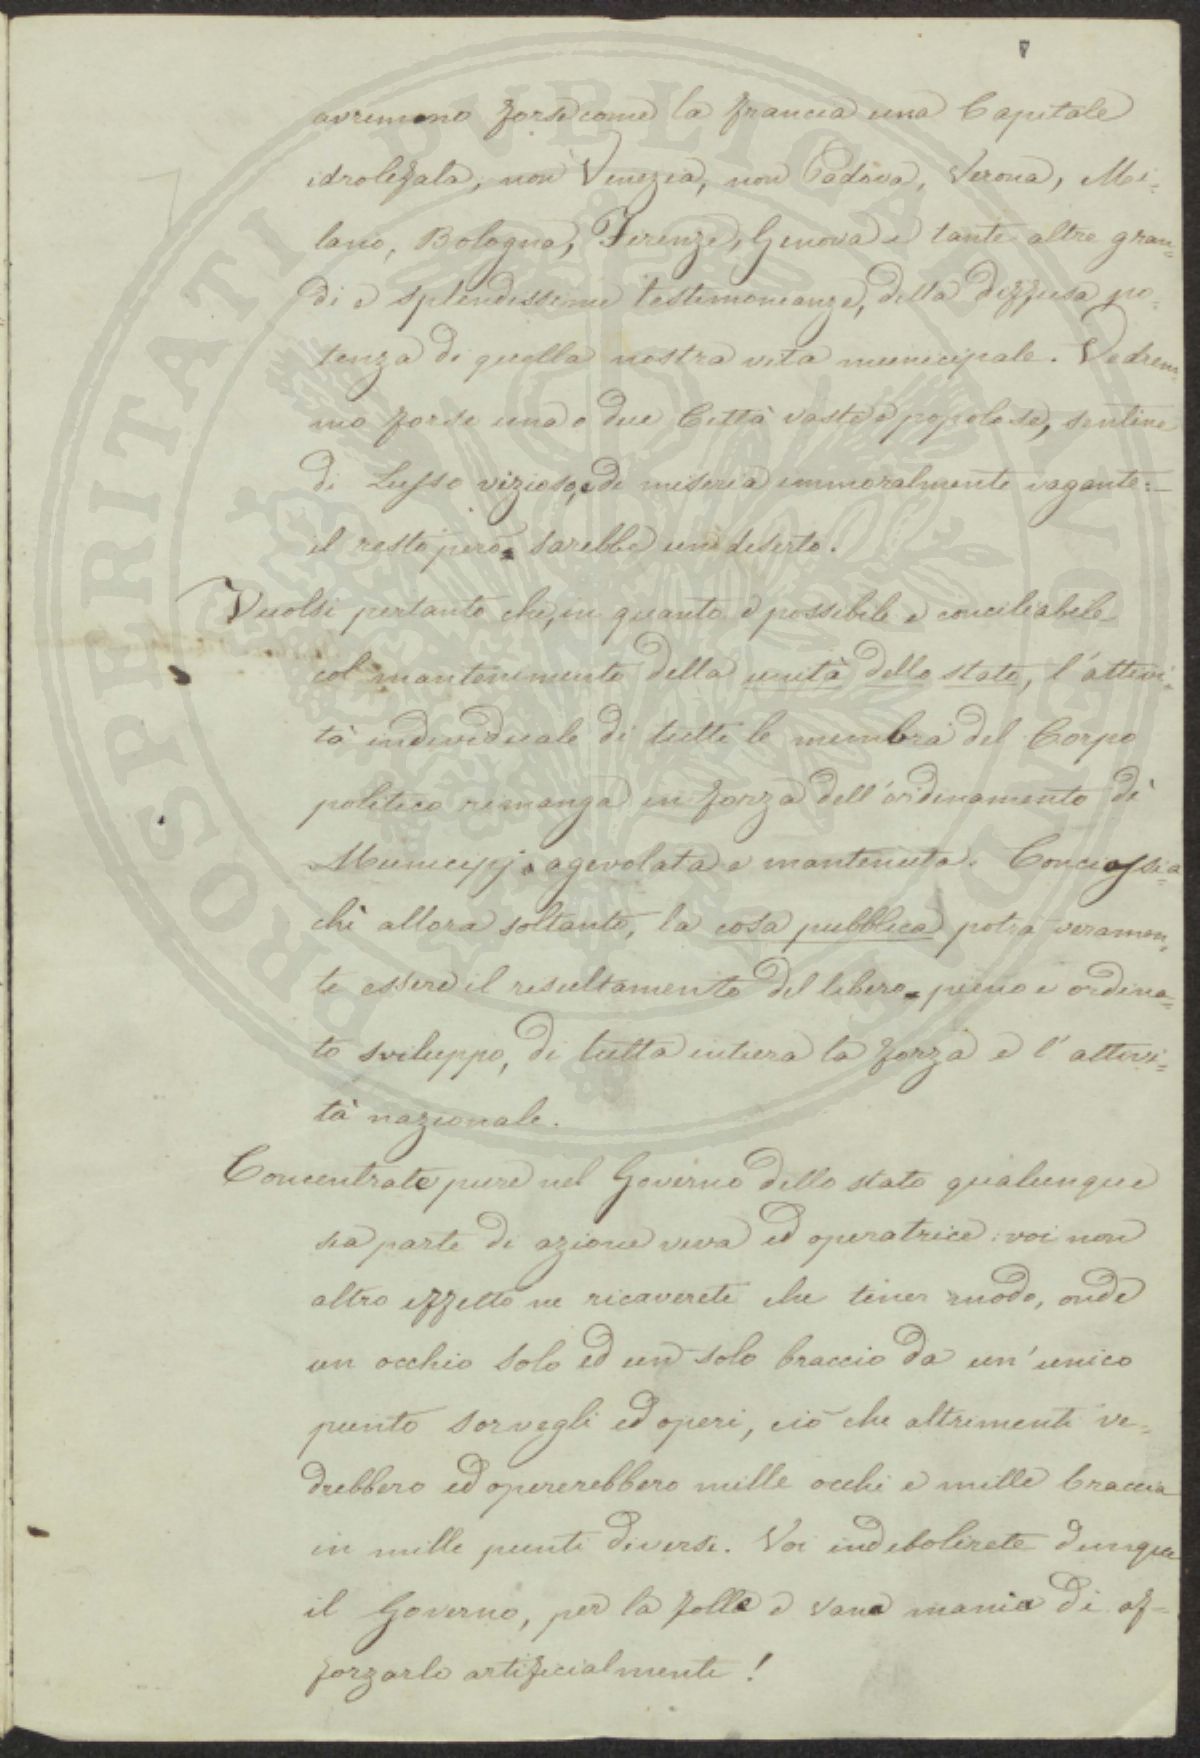 7
avremmo forse come la francia una Capitale
idrolefata, non Venezia, non Padova, Verona, Mi=
lano, Bologna, Firenze, Genova e tante altre gran=
di e splendissime testimonianze, della diffusa po=
tenza di quella nostra vita municipale. Vedrem=
mo forse una o due Città vaste e popolose, sentine
di Lusso vizioso, e di miseria immoralmente vagante:—
il resto però sarebbe un deserto.
Vuolsi pertanto che, in quanto è possibile e conciliabile
col mantenimento della unità dello stato, l'attivi=
tà individuale di tutte le membra del Corpo
politico rimanga in forza dell'ordinamento di
Municipj agevolata e mantenuta. Conciossia=
chè allora soltanto, la cosa pubblica potrà veramen=
te essere il risultamento del libero pieno e ordina=
to sviluppo, di tutta intiera la forza e l'attivi=
tà nazionale.
Concentrate pure nel Governo dello stato qualunque
sia parte di azione viva ed operatrice: voi non
altro effetto ne ricaverete che tener modo, onde
un occhio solo ed un solo braccio da un'unico
punto sorvegli ed operi, ciò che altrimenti ve=
drebbero ed opererebbero mille occhi e mille braccia
in mille punti diversi. Voi indebolirete dunque
il Governo, per la folle e vana mania di af=
forzarlo artificialmente!
PROSPERITATI PVBLICAE